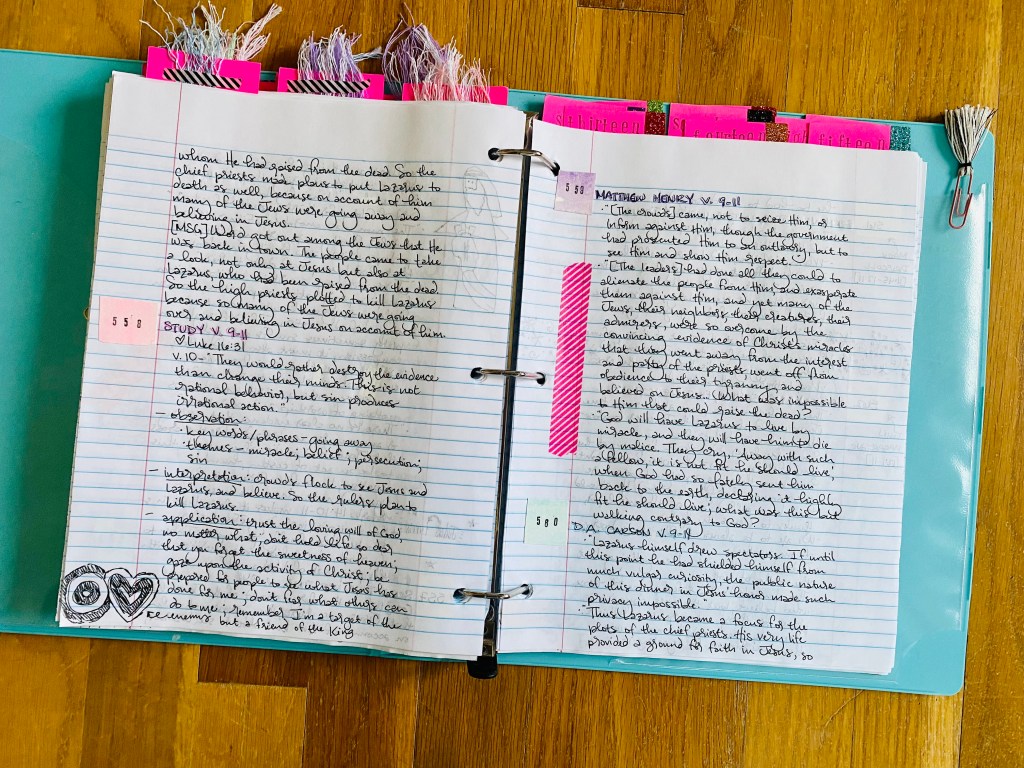 thirteen
fourteen
fifteen
whom He had raised from the dead. So the
chief priests made plans to put Lazarus to
death as well, because on account of him
many of the Jews were going away and
believing in Jesus.
[MSG] Word got out among the Jews that He
was back in town. The people came to take
a look, not only at Jesus but also at
Lazarus, who had been raised from the dead.
So the high priests plotted to kill Lazarus
because so many of the Jews were going
over and believing in Jesus on account of him.
558
STUDY V. 9-11
♡Luke 16:31
v.10-"They would rather destroy the evidence
than change their minds. This is not
rational behavior, but sin produces
irrational action."
- observation:
·key words/phrases - going away
·themes - miracle; belief; persecution;
sin
- interpretation: crowds flock to see Jesus and
Lazarus, and believe. So the rulers plan to
kill Lazarus.
- application: trust the loving will of God
no matter what; don't hold life so dear
that you forget the sweetness of heaven;
gaze upon the activity of Christ; be
prepared for people to see what Jesus has
done for me; don't fear what others can
do to me; remember I'm a target of the
enemy but a friend of the King
559
MATTHEW HENRY V. 9-11
·"[The crowds] came, not to seize Him, or
inform against Him, though the government
had prosecuted Him to an outlawry, but to
see Him and show Him respect."
·"[The leaders] had done all they could to
alienate the people from Him, and exasperate
them against Him, and yet many of the
Jews, their neighbors, their creatures, their
admirers, were so overcome by the
convincing evidence of Christ's miracles
that they went away from the interest
and party of the priests, went off from
obedience to their tyranny, and
believed on Jesus... What was impossible
to Him that could raise the dead?
·"God will have Lazarus to live by
miracle, and they will have him to die
by malice. They cry, 'Away with such
a fellow, it is not fit he should live,'
when God had so lately sent him
back to the earth, declaring it highly
fit he should live; what was this but
walking contrary to God?
560
D.A. CARSON V. 9-11
·"Lazarus himself drew spectators. If until
this point he had shielded himself from
much vulgar curiosity, the public nature
of this dinner in Jesus' honor made such
privacy impossible."
·"Thus Lazarus became a focus for the
plots of the chief priests. His very life
provided a ground for faith in Jesus, so